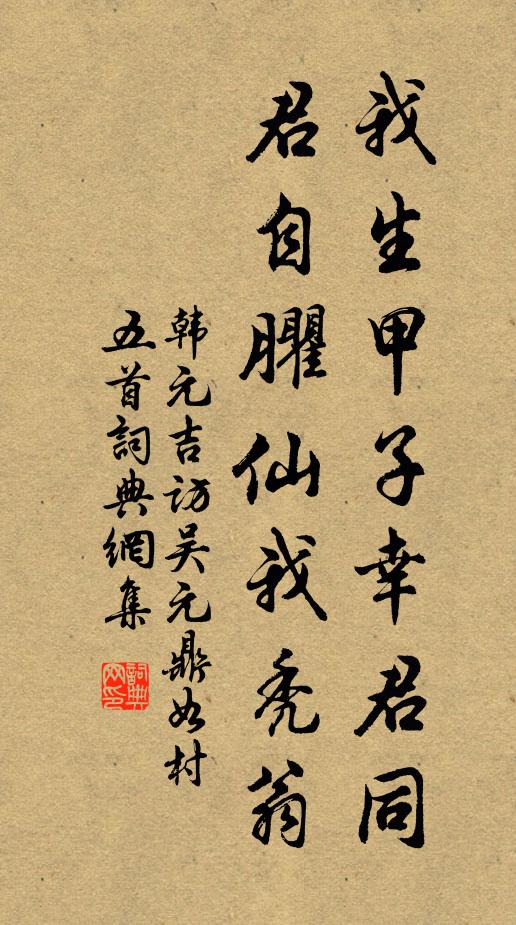 我生甲子幸君同
君自臞仙我秃翁
韩元吉访吴元鼎如村
五首詞典網集
詞典
网印